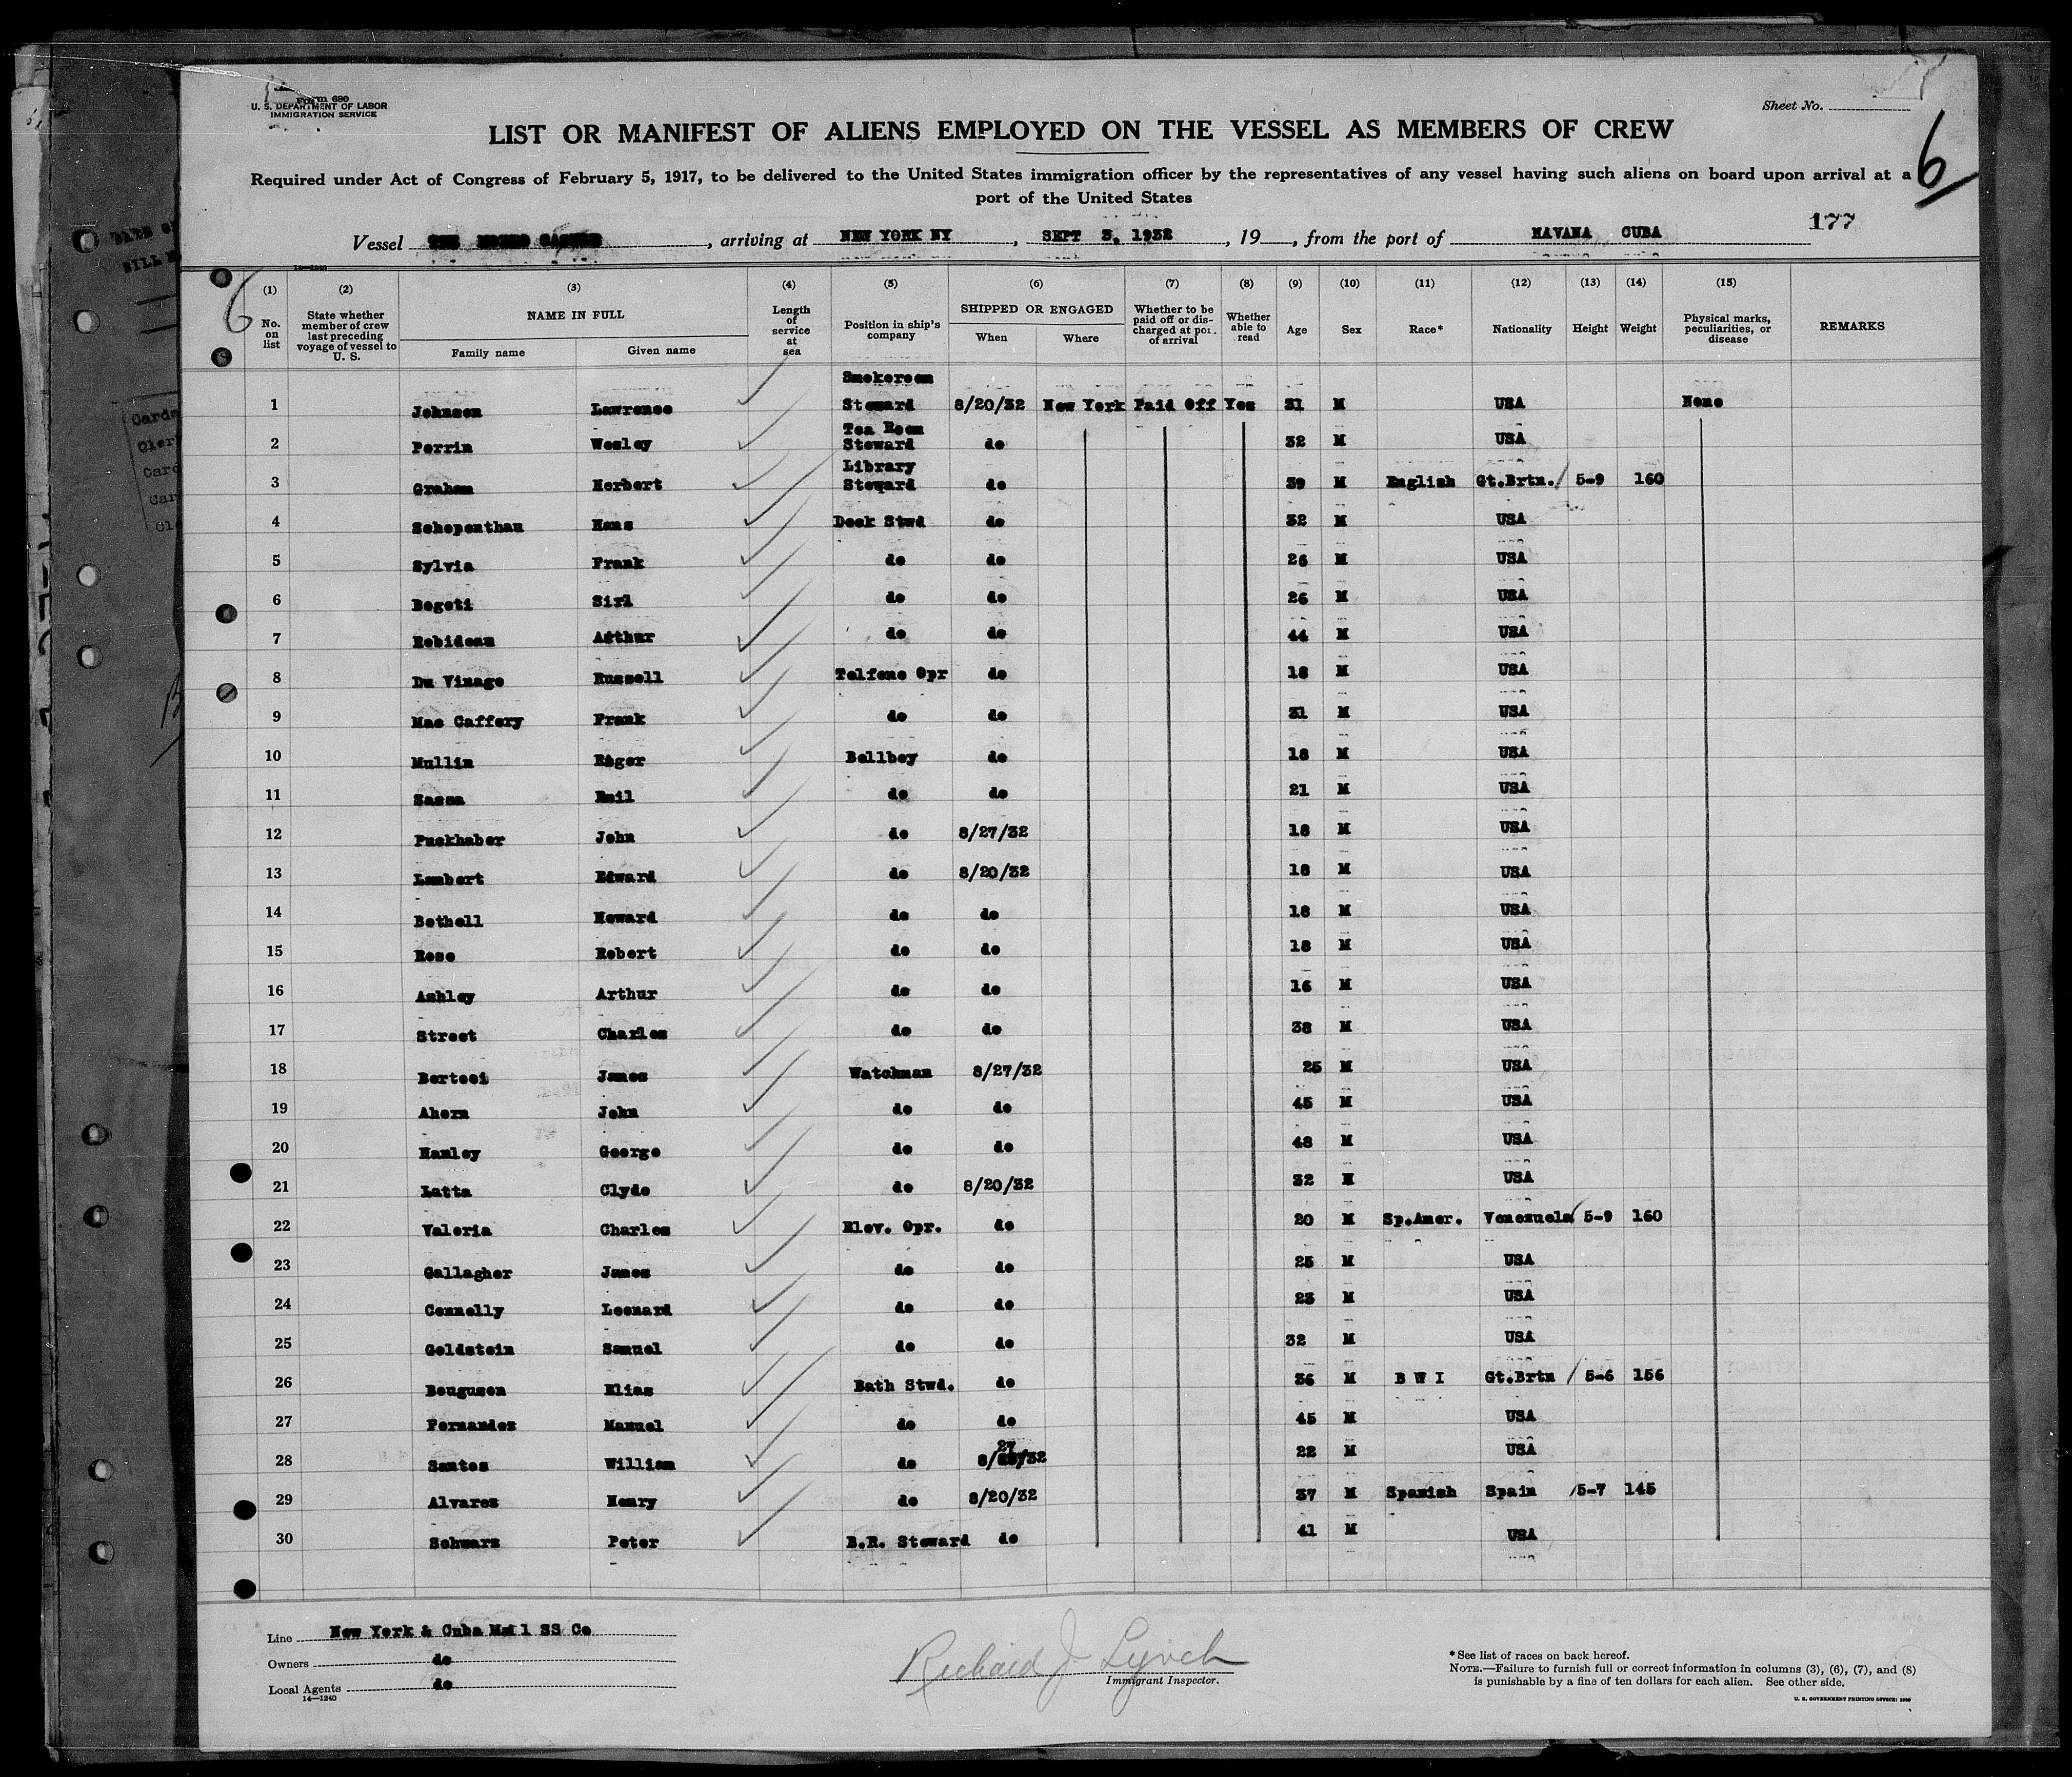 Form 680
U. S. DEPARTMENT OF LABOR
IMMIGRATION SERVICE
Sheet No.
6
LIST OR MANIFEST OF ALIENS EMPLOYED ON THE VESSEL AS MEMBERS OF CREW
Required under Act of Congress of February 5, 1917, to be delivered to the United States immigration officer by the representatives of any vessel having such aliens on board upon arrival at a
port of the United States
177
Vessel THE MORRO CASTLE, arriving at NEW YORK NY, SEPT 3, 1932, 19, from the port of HAVANA CUBA
14—1240
6
(1) (2) (3) (4) (5) (6) (7) (8) (9) (10) (11) (12) (13) (14) (15)
No. on list State whether member of crew last preceding voyage of vessel to U. S. NAME IN FULL Family name Given name Length of service at sea Position in ship's company SHIPPED OR ENGAGED When Where Whether to be paid off or discharged at port of arrival Whether able to read Age Sex Race* Nationality Height Weight Physical marks, peculiarities, or disease REMARKS
1 Johnson Lawrence Smokeroom Steward 8/20/32 New York Paid Off Yes 31 M USA None
2 Perrin Wesley Tea Room Steward do 32 M USA
3 Graham Herbert Library Steward do 39 M English Gt.Brtn. 5-9 160
4 Schopenthau Hans Deck Stwd do 32 M USA
5 Sylvia Frank do do 26 M USA
6 Bogoti Sirl do do 26 M USA
7 Robideau Arthur do do 44 M USA
8 Du Vinage Russell Telfone Opr do 18 M USA
9 Mac Caffery Frank do do 31 M USA
10 Mullin Roger Bellboy do 18 M USA
11 Sassa Emil do do 21 M USA
12 Puckhaber John do 8/27/32 18 M USA
13 Lambert Edward do 8/20/32 18 M USA
14 Bethell Howard do do 18 M USA
15 Rose Robert do do 18 M USA
16 Ashley Arthur do do 16 M USA
17 Street Charles do do 38 M USA
18 Bertoci James Watchman 8/27/32 25 M USA
19 Ahern John do do 45 M USA
20 Hanley George do do 48 M USA
21 Latta Clyde do 8/20/32 32 M USA
22 Valeria Charles Elev. Opr. do 20 M Sp.Amer. Venezuela 5-9 160
23 Gallagher James do do 25 M USA
24 Connolly Leonard do do 23 M USA
25 Goldstein Samuel do do 32 M USA
26 Bouguson Elias Bath Stwd. do 36 M B W I Gt.Brtn 5-6 156
27 Fernandez Manuel do do 45 M USA
28 Santos William do 8/27/32 22 M USA
29 Alvarez Henry do 8/20/32 37 M Spanish Spain 5-7 145
30 Schwarz Peter B.R. Steward do 41 M USA
Line New York & Cuba Mail SS Co
Owners do
Local Agents do
14—1240
Richard J Lynch
Immigrant Inspector.
*See list of races on back hereof.
NOTE.—Failure to furnish full or correct information in columns (3), (6), (7), and (8)
is punishable by a fine of ten dollars for each alien. See other side.
U. S. GOVERNMENT PRINTING OFFICE: 1930